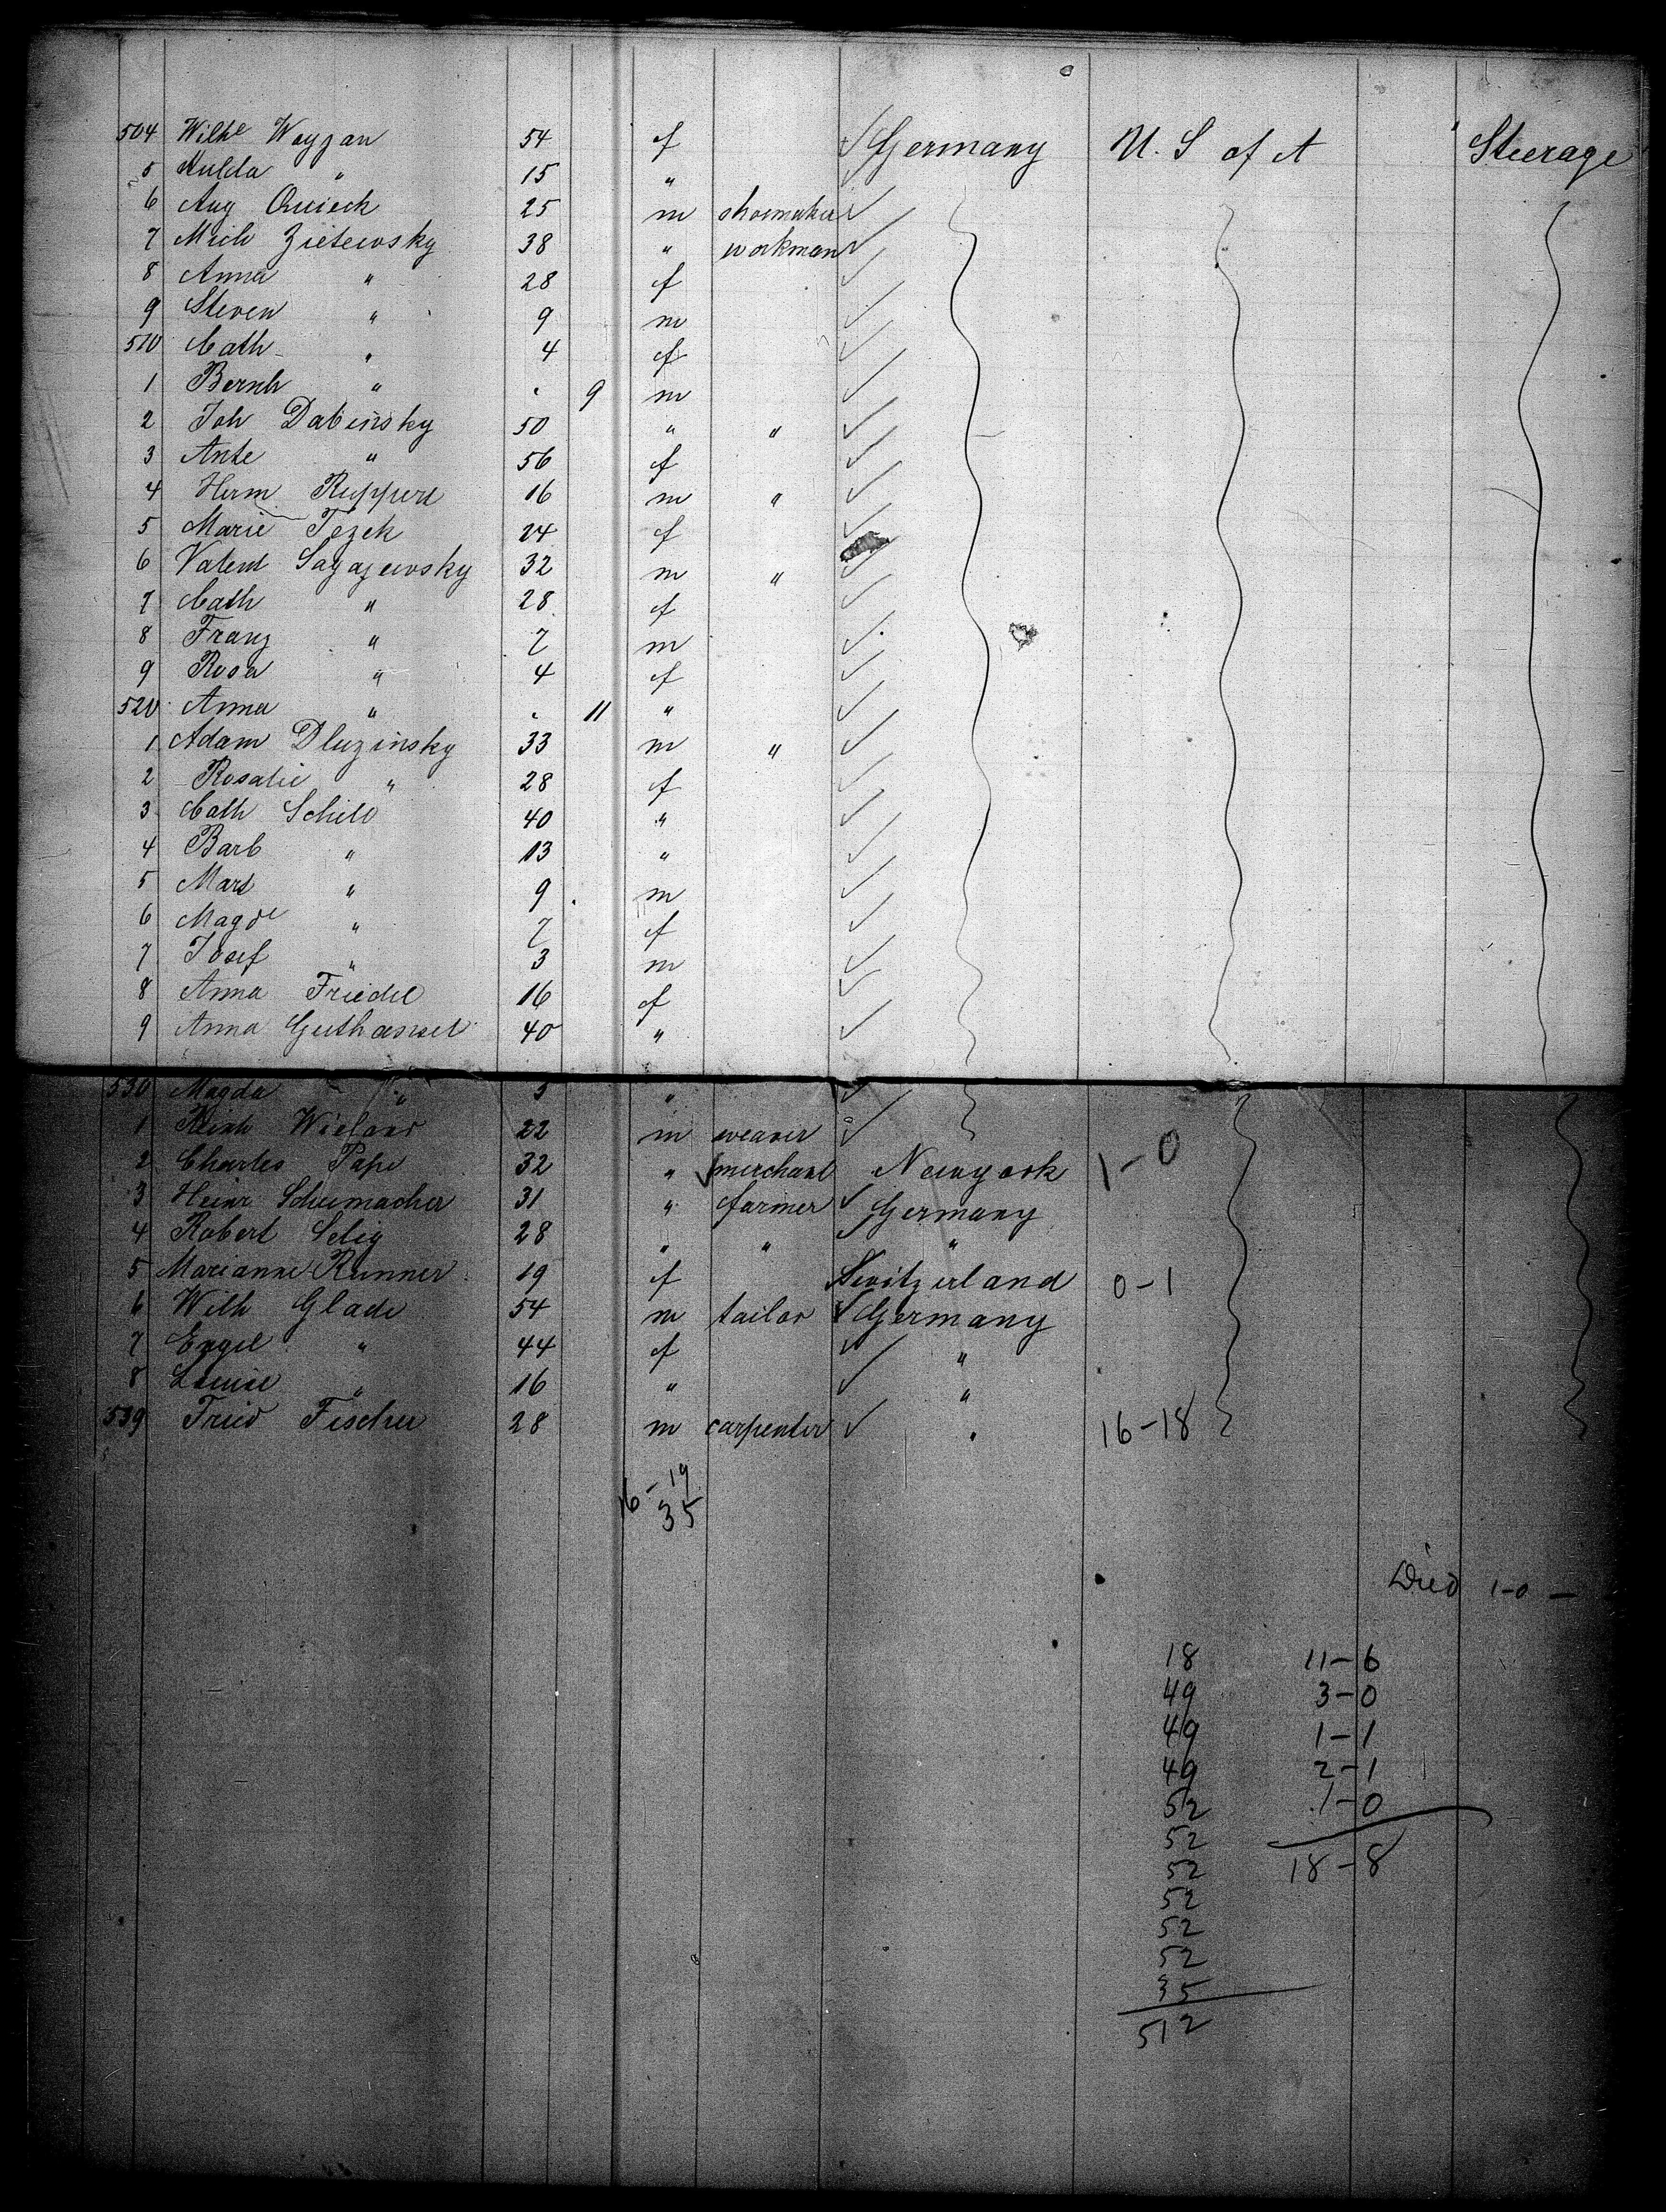 504 Wilhe Woyzan 54 f Germany U. S of A Steerage
5 Hulda " 15 "
6 Aug Quieck 25 m shoemaker
7 Mich Zietewsky 38 " workman
8 Anna " 28 f
9 Steven " 9 m
510 Cath " 4 f
1 Bernh " . 9 m
2 Joh Dabinsky 50 " "
3 Ante " 56 f
4 Herm Ruppert 16 m "
5 Marie Tezek 24 f
6 Valent Sagajewsky 32 m "
7 Cath " 28 f
8 Franz " 7 m
9 Rosa " 4 f
520 Anna " . 11 "
1 Adam Dluzinsky 33 m "
2 Rosalie " 28 f
3 Cath Schild 40 "
4 Barb " 13 "
5 Mart " 9 m
6 Magde " 7 f
7 Josef " 3 m
8 Anna Friedel 16 f
9 Anna Guthassel 40 "
530 Magda " 3 "
1 Reinh Wieland 22 m weaver
2 Charles Pape 32 " merchant Newyork 1-0
3 Heinr Schumacher 31 " farmer Germany
4 Robert Selig 28 " " "
5 Marianne Runner 19 f Switzerland 0-1
6 Wilh Glade 54 m tailor Germany
7 Engel " 44 f "
8 Louise " 16 " "
539 Fried Fischer 28 m carpenter " 16-18
16-19
35
Died 1-0 -
18 11-6
49 3-0
49 1-1
49 2-1
52 1-0
52
52 18-8
52
52
52
35
512